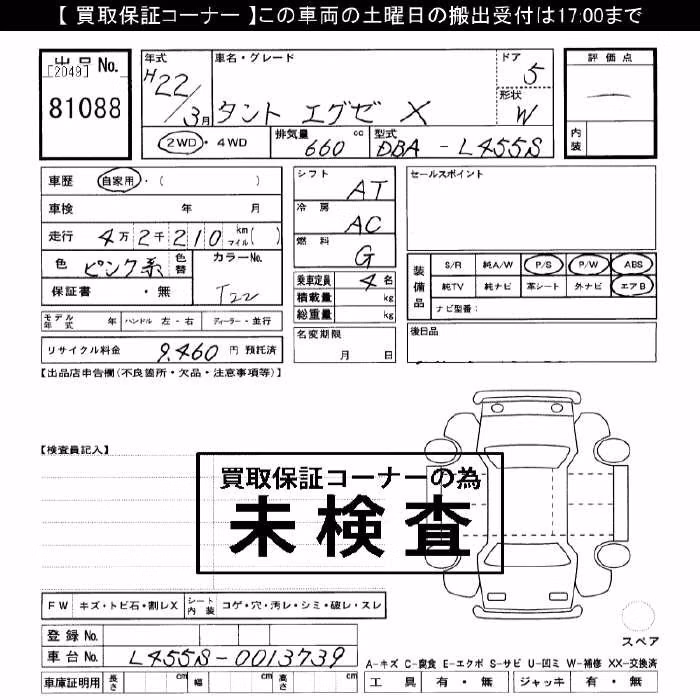 【 買取保証コーナー 】この車両の土曜日の搬出受付は17:00まで
出品 No.
[2049]
81088
年式 H22/3月
車名・グレード タント エグゼ X
ドア 5
形状 W
2WD ・ 4WD
排気量 660 cc
型式 DBA - L455S
評価点 —
内装
車歴 自家用・( )
車検 年 月
走行 4万2千210 km マイル( )
色 ピンク系 色替 カラーNo. T22
保証書 ・ 無
モデル年式 年 ハンドル 左・右 ディーラー・並行
リサイクル料金 9,460 円 預託済
シフト AT
冷房 AC
燃料 G
乗車定員 4名
積載量 kg
総重量 kg
名変期限 月 日
セールスポイント
装備品
S/R 純A/W P/S P/W ABS
純TV 純ナビ 革シート 外ナビ エアB
ナビ型番:
後日品
【出品店申告欄(不良箇所・欠品・注意事項等)】
【検査員記入】
買取保証コーナーの為
未検査
FW キズ・トビ石・割レX シート内装 コゲ・穴・汚レ・シミ・破レ・スレ
登録 No.
車台 No. L455S-0013739
車庫証明用 長さ cm 幅 cm 高さ cm
スペア
A-キズ C-腐食 E-エクボ S-サビ U-凹ミ W-補修 XX-交換済
工具 有・無 ジャッキ 有・無